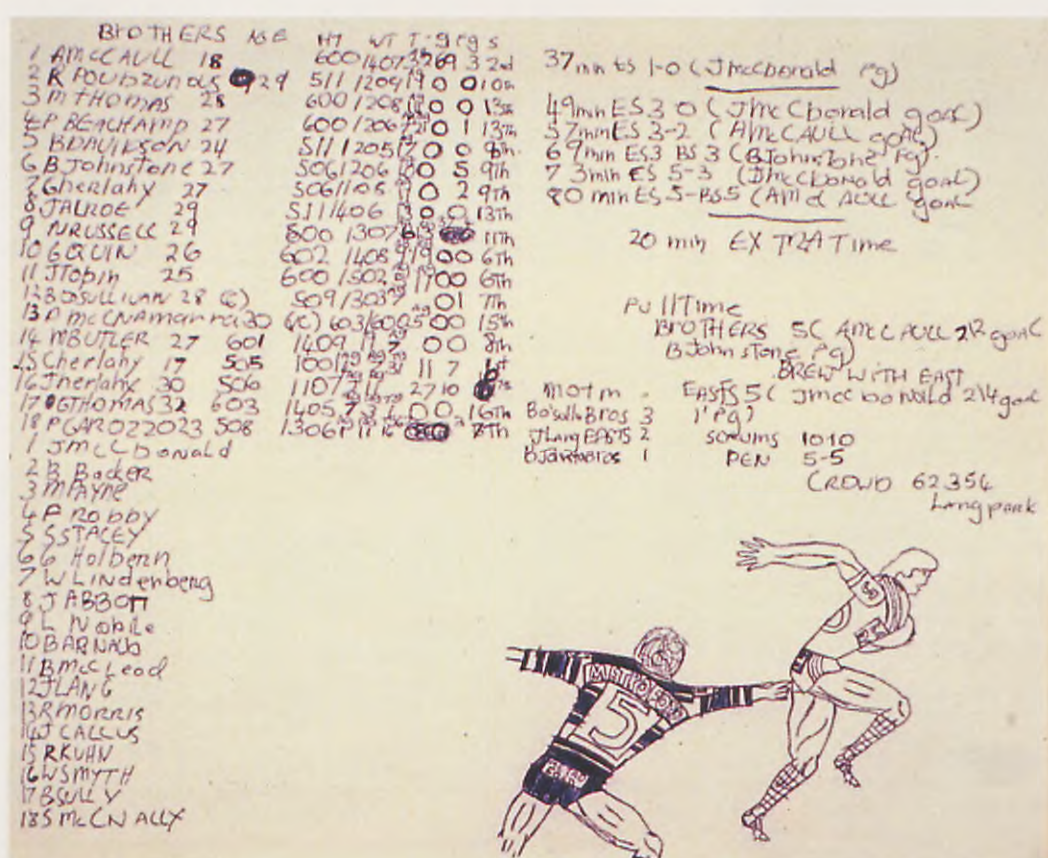 BrOTHERS AGE HT WT T g Fg S
1 AMCCAULL 18 600 1407 2nd
2 R POUDZUNDUS 29 511 1209 19 0 0 10th
3 M THOMAS 28 600 1208 0 0 13th
4 P BEACHAMP 27 600 1206 0 1 13th
5 BDAVIDSON 24 511 1205 17 0 0 8th
6 BJohnstone 27 506 1206 0 5 9th
7 Gherlahy 27 506 1105 0 2 9th
8 JALROE 29 511 1406 0 0 13th
9 NRUSSELL 29 600 1307 11th
10 GQUIN 26 602 1408 0 0 6th
11 JTobin 25 600 1302 0 0 6th
12 BOSULLIVAN 28 (C) 509 1303 01 7th
13 P McCNAmarra 30 (VC) 603 1600 00 15th
14 MBUTLER 27 601 1409 19 7 00 8th
15 Cherlahy 17 505 1001 11 7
16 Jherlahy 30 506 1107 27 10
17 GTHOMAS 32 603 1405 0 0 16th
18 PGAROZZO 23 508 1306 8th
1 JMCCDonald
2 B Backer
3 MPAYNE
4 P ROBBY
5 SSTACEY
6 G Holbenn
7 WLindenberg
8 J ABBOTT
9 L Nobile
10 BARNAB
11 BMcCLeod
12 JLANG
13 RMORRIS
14 J CALLUS
15 RKUHN
16 WSMYTH
17 BSULLY
18 S McCNALLY
37 min ES 1-0 (JMcCbonald Fg)
49min ES 3 0 (JMcCbonald goal)
57min ES 3-2 (AMCCAULL goal)
69min ES3 BS 3 (BJohnstone Fg)
73min ES 5-3 (JMcCbonald goal)
80 min ES 5-BS5 (AMCCAULL goal
20 min EXTRA Time
FullTime
BrOTHERS 5( AMCCAULL 2 goal
BJohnstone Fg)
DREW WITH EAST
EASTS 5( JMcCbonald 2 goal
1 Fg)
MOTM
Bo'sullaBros 3
JLang EASTS 2
BJohnBros 1
scrums 10 10
PEN 5-5
CROWD 62354
Langpark
5
METRO FORD
5